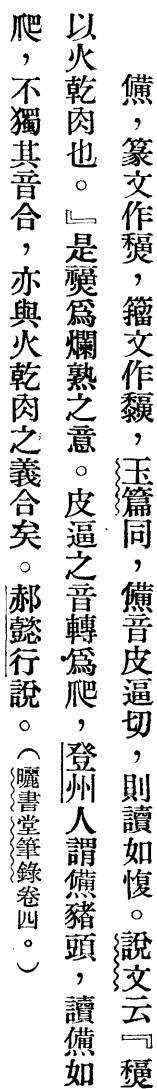 ，篆文作，籀文作，玉篇同，音皮逼切，則讀如愎。說文云『
以火乾肉也。』是爲爛熟之意。皮逼之音轉爲爬，登州人謂豬頭，讀如
爬，不獨其音合，亦與火乾肉之義合矣。郝懿行說。（曬書堂筆錄卷四。）